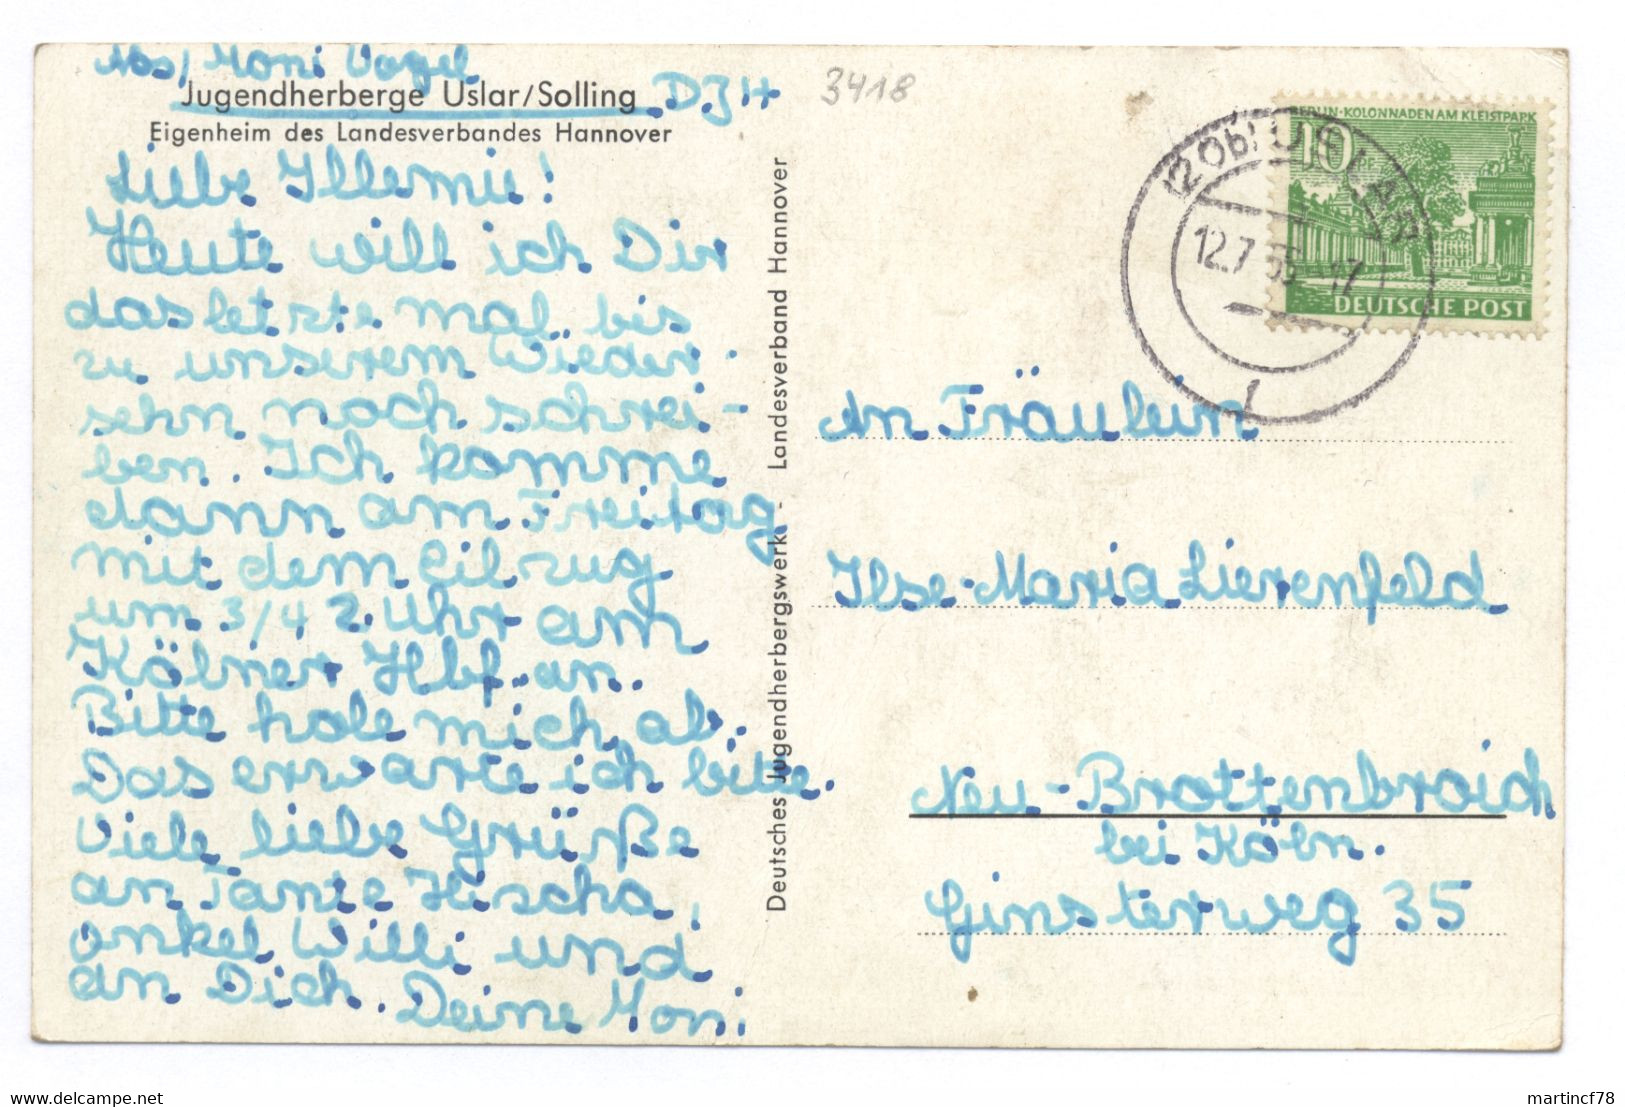 Abs/ Moni Vogel
Jugendherberge Uslar/Solling DJH
Eigenheim des Landesverbandes Hannover
Liebe Illemie!
Heute will ich Dir
das letzte mal bis
zu unserem Wieder
sehn noch schrei-
ben. Ich komme
dann am Freitag
mit dem Eilzug
um 3/4 2 Uhr am
Kölner Hbf. an.
Bitte hole mich ab.
Das erwarte ich bitte.
Viele liebe Grüße
an Tante Hischa,
onkel Willi und
an Dich. Deine Moni
Deutsches Jugendherbergswerk - Landesverband Hannover
3418
BERLIN-KOLONNADEN AM KLEISTPARK
10
DEUTSCHE POST
(20b) USLAR
12.7.55-17
1
An Fräulein
Ilse-Maria Lierenfeld
Neu-Brottenbroich
bei Köln.
Ginsterweg 35
www.delcampe.net
martincf78